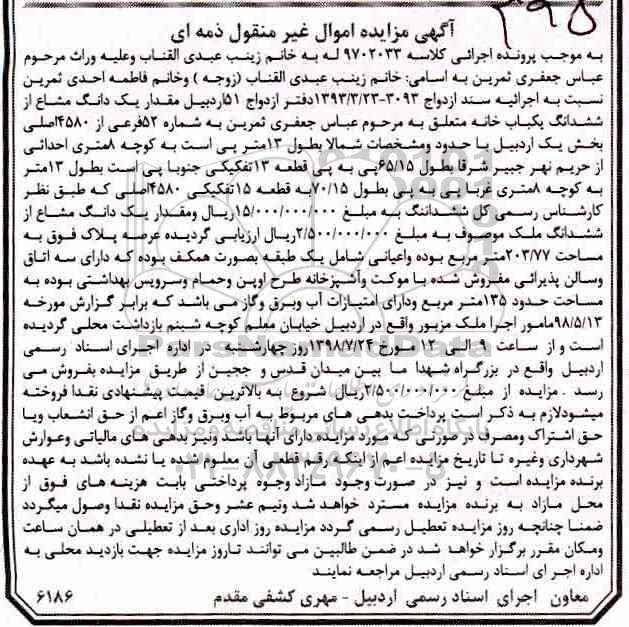 ۳۹۵
آگهی مزایده اموال غیر منقول ذمه ای
به موجب پرونده اجرائی کلاسه ۹۷۰۲۰۳۳ له به خانم زینب عبدی القناب وعلیه وراث مرحوم
عباس جعفری ثمرین به اسامی: خانم زینب عبدی القناب (زوجه ) وخانم فاطمه احدی ثمرین
نسبت به اجرائیه سند ازدواج ۳۰۹۳-۱۳۹۳/۳/۲۳دفتر ازدواج ۵۱اردبیل مقدار یک دانگ مشاع از
ششدانگ یکباب خانه متعلق به مرحوم عباس جعفری ثمرین به شماره ۵۲فرعی از ۴۵۸۰اصلی
بخش یک اردبیل با حدود ومشخصات شمالا بطول ۱۳متر پی است به کوچه ۸متری احداثی
از حریم نهر جبیر شرقا بطول ۶۵/۱۵پی به پی قطعه ۱۳تفکیکی جنوبا پی است بطول ۱۳متر
به کوچه ۸متری غربا پی به پی بطول ۷۰/۱۵به قطعه ۱۵تفکیکی ۴۵۸۰اصلی که طبق نظر
کارشناس رسمی کل ششدانگ به مبلغ ۱۵/۰۰۰/۰۰۰/۰۰۰ریال ومقدار یک دانگ مشاع از
ششدانگ ملک موصوف به مبلغ ۲/۵۰۰/۰۰۰/۰۰۰ریال ارزیابی گردیده عرصه پلاک فوق به
مساحت ۲۰۳/۷۷متر مربع بوده واعیانی شامل یک طبقه بصورت همکف بوده که دارای سه اتاق
وسالن پذیرائی مفروش شده با موکت وآشپزخانه طرح اوپن وحمام وسرویس بهداشتی بوده به
مساحت حدود ۱۳۵متر مربع ودارای امتیازات آب وبرق وگاز می باشد که برابر گزارش مورخه
۹۸/۵/۱۳مامور اجرا ملک مزبور واقع در اردبیل خیابان معلم کوچه شبنم بازداشت محلی گردیده
است و از ساعت ۹ الی ۱۲ مورخ ۱۳۹۸/۷/۲۴روز چهارشنبه در اداره اجرای اسناد رسمی
اردبیل واقع در بزرگراه شهدا ما بین میدان قدس و ججین از طریق مزایده بفروش می
رسد . مزایده از مبلغ ۲/۵۰۰/۰۰۰/۰۰۰ریال شروع به بالاترین قیمت پیشنهادی نقدا فروخته
میشودلازم به ذکر است پرداخت بدهی های مربوط به آب وبرق وگاز اعم از حق انشعاب ویا
حق اشتراک ومصرف در صورتی که مورد مزایده دارای آنها باشد ونیز بدهی های مالیاتی وعوارش
شهرداری وغیره تا تاریخ مزایده اعم از اینکه رقم قطعی آن معلوم شده یا نشده باشد به عهده
برنده مزایده است و نیز در صورت وجود مازاد وجوه پرداختی بابت هزینه های فوق از
محل مازاد به برنده مزایده مسترد خواهد شد ونیم عشر وحق مزایده نقدا وصول میگردد
ضمنا چنانچه روز مزایده تعطیل رسمی گردد مزایده روز اداری بعد از تعطیلی در همان ساعت
ومکان مقرر برگزار خواهد شد در ضمن طالبین می توانند تاروز مزایده جهت بازدید محلی به
اداره اجر ای اسناد رسمی اردبیل مراجعه نمایند
معاون اجرای اسناد رسمی اردبیل - مهری کشفی مقدم
۶۱۸۶
ParsNamadData
پایگاه اطلاع رسانی مناقصه و مزایده
۰۲۱-۸۸۳۴۹۶۷۰-۵